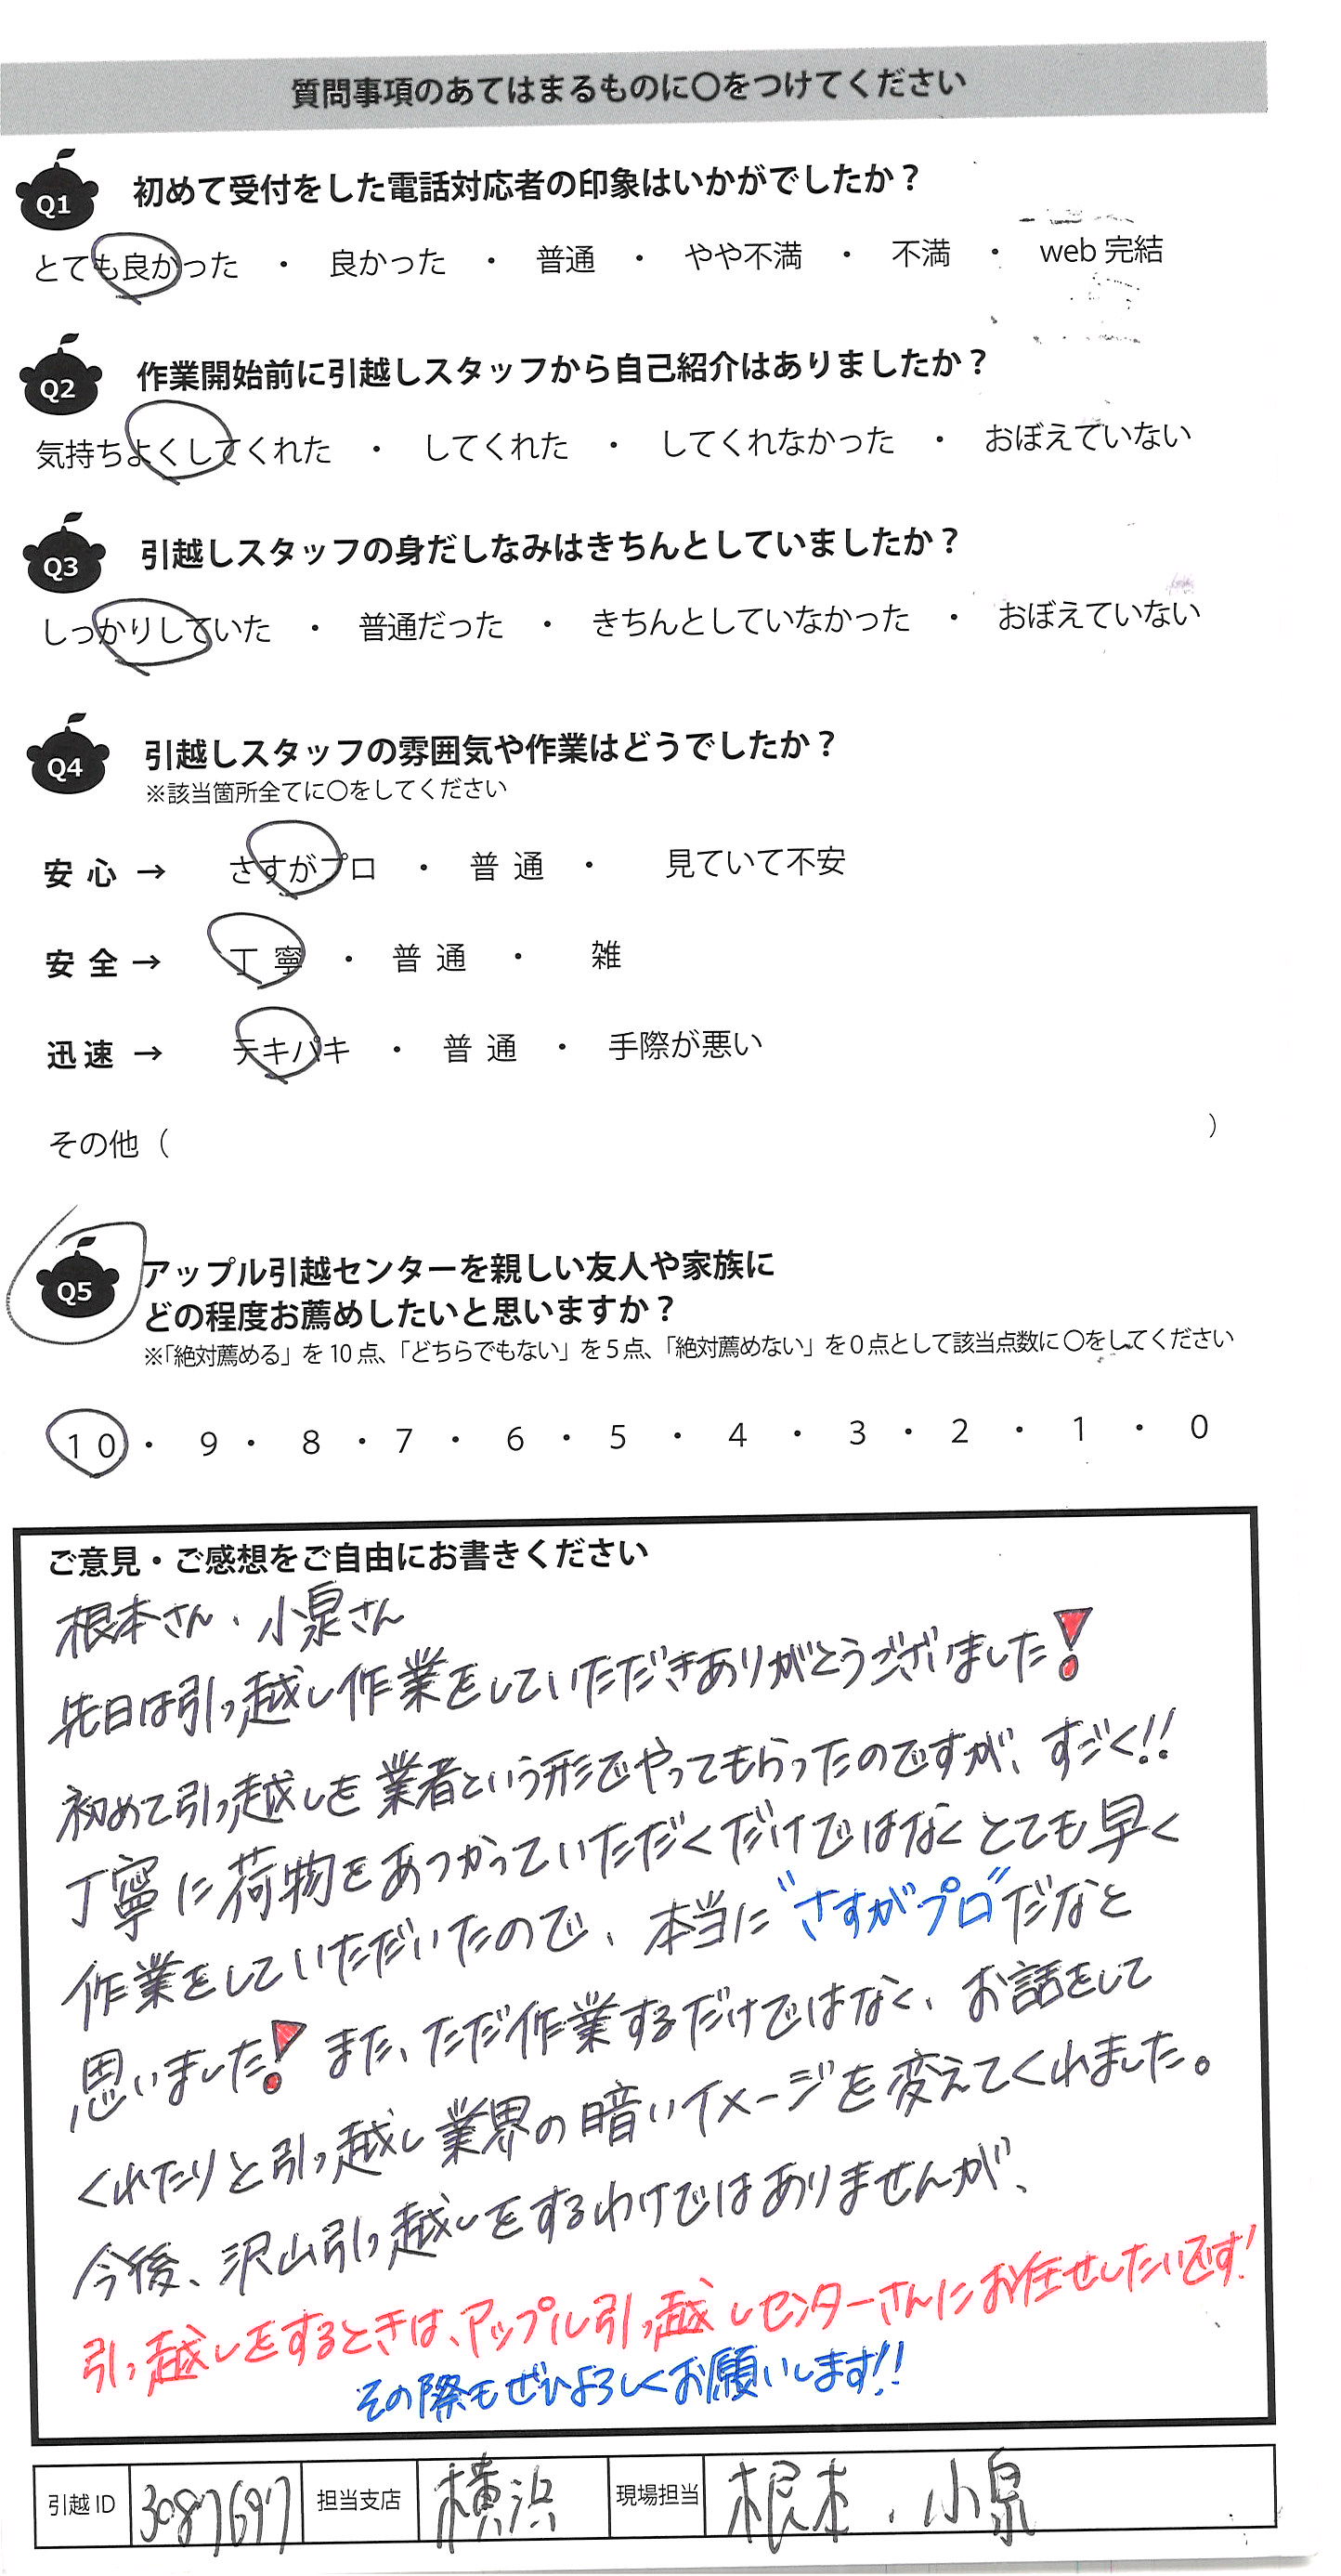 質問事項のあてはまるものに〇をつけてください
Q1 初めて受付をした電話対応者の印象はいかがでしたか？
とても良かった ・ 良かった ・ 普通 ・ やや不満 ・ 不満 ・ web 完結
Q2 作業開始前に引越しスタッフから自己紹介はありましたか？
気持ちよくしてくれた ・ してくれた ・ してくれなかった ・ おぼえていない
Q3 引越しスタッフの身だしなみはきちんとしていましたか？
しっかりしていた ・ 普通だった ・ きちんとしていなかった ・ おぼえていない
Q4 引越しスタッフの雰囲気や作業はどうでしたか？
※該当箇所全てに〇をしてください
安心 → さすがプロ ・ 普通 ・ 見ていて不安
安全 → 丁寧 ・ 普通 ・ 雑
迅速 → テキパキ ・ 普通 ・ 手際が悪い
その他（ ）
Q5 アップル引越センターを親しい友人や家族に
どの程度お薦めしたいと思いますか？
※「絶対薦める」を10点、「どちらでもない」を5点、「絶対薦めない」を0点として該当点数に〇をしてください
10 ・ 9 ・ 8 ・ 7 ・ 6 ・ 5 ・ 4 ・ 3 ・ 2 ・ 1 ・ 0
ご意見・ご感想をご自由にお書きください
根本さん、小泉さん
先日は引っ越し作業をしていただきありがとうございました！
初めて引っ越しを業者という形でやってもらったのですが、すごく!!
丁寧に荷物をあつかっていただくだけではなくとても早く
作業をしていただいたので、本当に"さすがプロ"だなと
思いました！また、ただ作業するだけではなく、お話をして
くれたりと引っ越し業界の暗いイメージを変えてくれました。
今後、沢山引っ越しをするわけではありませんが、
引っ越しをするときは、アップル引っ越しセンターさんにお任せしたいです！
その際もぜひよろしくお願いします!!
引越ID 3087697 担当支店 横浜 現場担当 根本・小泉